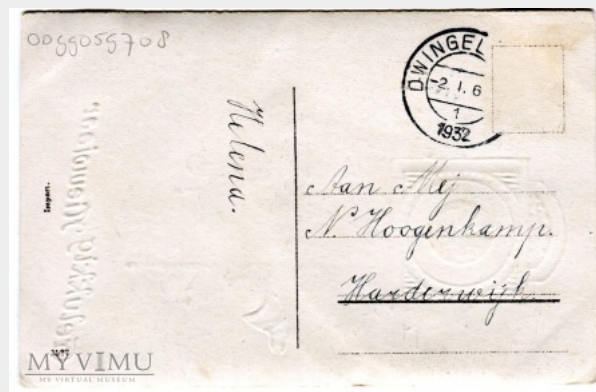 0099059708
DWINGEL
-2.1.6
1
1932
Helena.
Aan Mej
N. Hoogenkamp.
Harderwijk.
Import.
MYVIMU
MY VIRTUAL MUSEUM